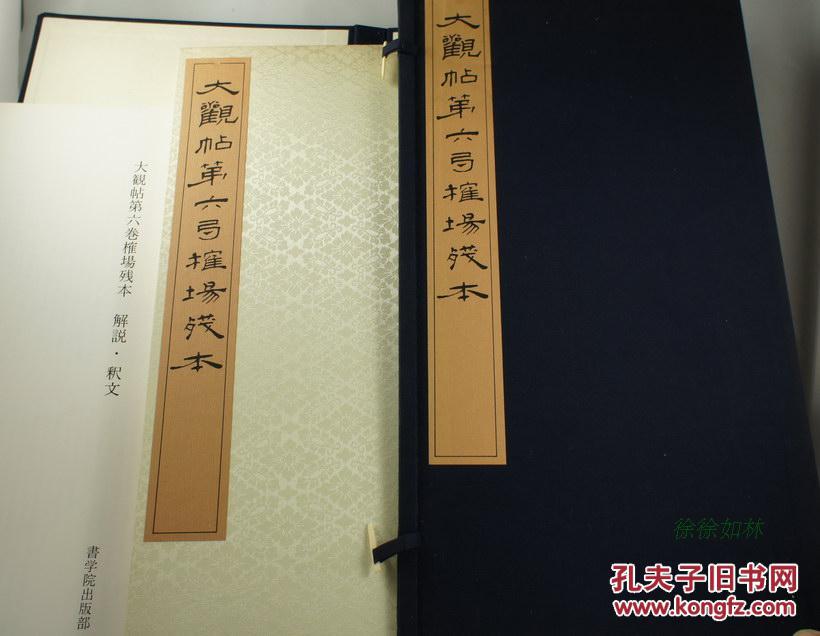 大觀帖第六弓榷場殘本
大觀帖第六弓榷場殘本
大観帖第六巻榷場残本　解説・釈文
書学院出版部
徐徐如林
孔夫子旧书网
www.kongfz.com